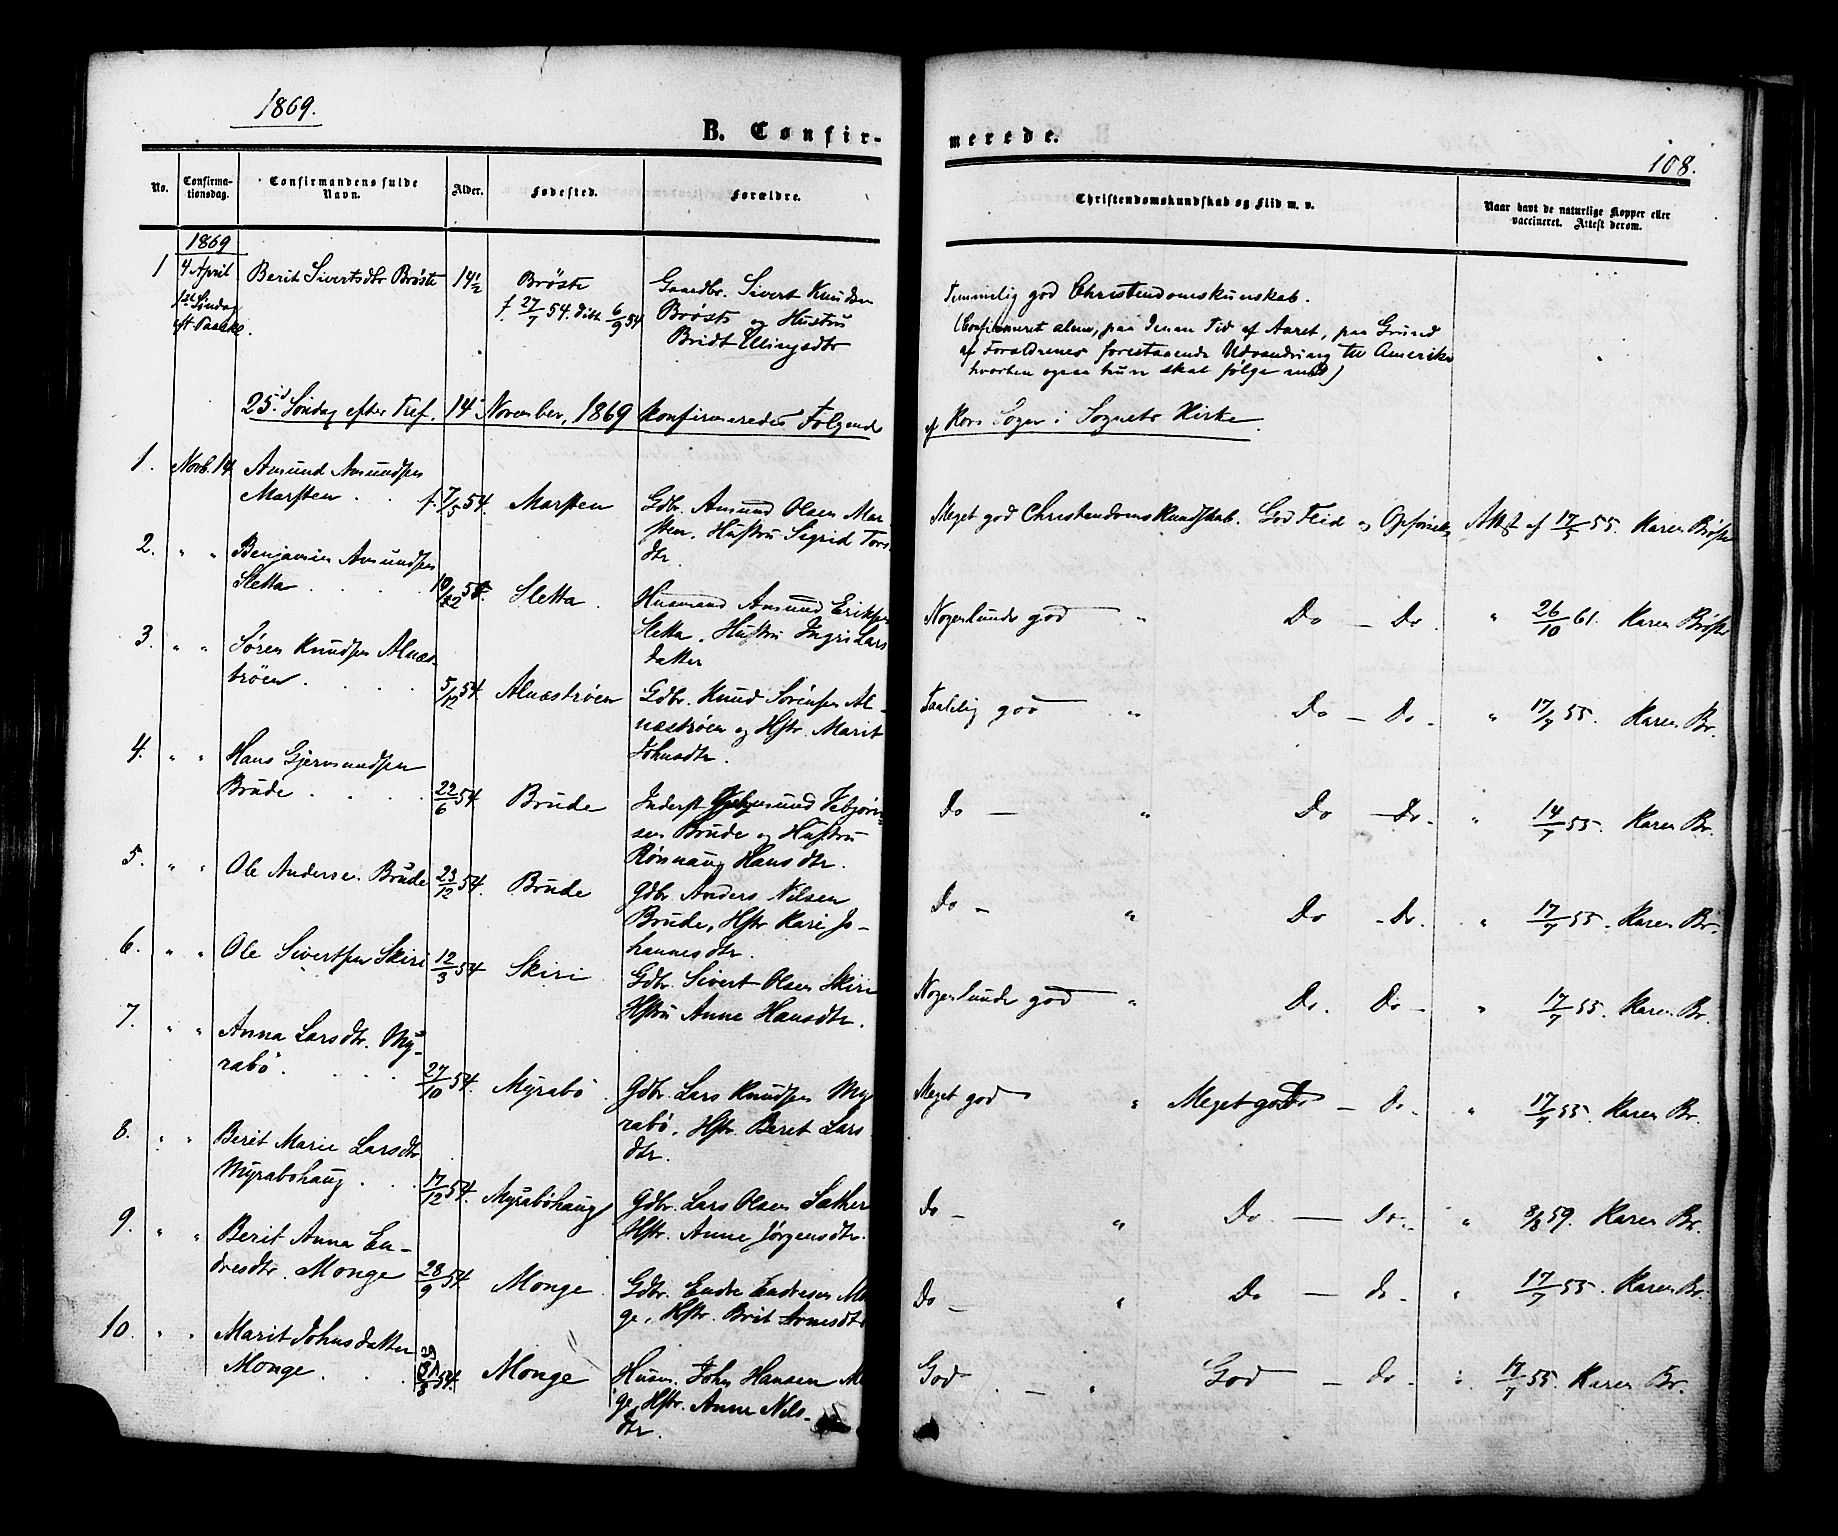 1869.
B. Confir-
merede.
108.
No.
Confirma-
tionsdag.
Confirmandens fulde
Navn.
Alder.
Fødested.
Forældre.
Christendomskundskab og Flid m. v.
Naar havt de naturlige Kopper eller
vaccineret. Attest derom.
1869
1 4 April Berit Sivertsdtr Brøste 14½ Brøste Gaardbr. Sivert Knudsen
1ste Søndag f. 27/7 54. døbt 6/9 54 Brøste og Hustru
eft. Paaske. Bridt Ellingsdtr
Temmelig god Christendomskunskab.
(Confirmeret alene, paa denne Tid af Aaret, paa Grund
af Forældrenes forestaaende Udvandring til Amerika
hvorhen ogsaa hun skal følge med)
25. Søndag efter Tref. 14 November, 1869 konfirmeredes Følgende
af Kors Sogn i Sognets Kirke.
1. Novb. 14 Amund Amundsen
Marsten . . f. 7/5 54. Marsten Gdbr. Amund Olsen Mar-
sten, Hustru Sigrid Tors
dtr.
Meget god Christendomskundskab. God Flid og Opførsel Attest af 17/5 55. Karen Brøste
2. " " Benjamin Amundsen
Sletta . . . . Sletta . Husmand Amund Eriksen
Sletta, Hustru Ingri Lars
datter
Nogenlunde god " Do - Do. " 26/10 61. Karen Brøste
3. " " Søren Knudsen Alnæs-
trøen. . . . . 5/12 54. Alnæstrøen Gdbr. Knud Sørensen Al-
næstrøen og Hstr. Marit
Johnsdtr.
Taalelig god " Do - Do. " 17/7 55. Karen Br.
4. " " Hans Gjermundsen
Brude . . . . 22/6 54. Brude Inderst Gjermund Vebjørn-
sen Brude og Hustru
Rønnaug Hansdtr.
Do - " Do - Do. " 14/7 55. Karen Br.
5. " " Ole Anderse. Brude 23/12 54. Brude Gdbr Anders Nilsen
Brude, Hstr Kari Jo-
hannesdtr.
Do - " Do - Do. " 17/7 55. Karen Br.
6. " " Ole Sivertsen Skiri 12/3 54 Skiri Gdbr. Sivert Olsen Skiri
Hstru Anne Hansdtr.
Nogenlunde god " Do. Do - " 17/7 55. Karen Br.
7. " " Anna Larsdtr. My-
rabø. . . . . 27/10 54. Myrabø . Gdbr. Lars Knudsen My
rabø, Hstr. Beret Lars
dtr.
Meget god " Meget god - Do. " 17/7 55. Karen Br.
8. " " Berit Marie Larsdtr
Myrabøhaug . . . 17/12 54. Myrabøhaug Gdbr. Lars Olsen Sæther
Hstr. Anne Jørgensdtr.
Do - " Do. - Do. " 8/8 59. Karen Br.
9. " " Berit Anna En-
dresdtr. Monge 28/9 54 Monge . Gdbr. Endre Endresen Mon
ge, Hstr. Brit Arnesdtr
Do - " Do - Do - " 17/7 55. Karen Br.
10. " " Marit Johnsdatter
Monge . . . . Monge Husm. John Hansen Mon
ge, Hstr. Anne Nils-
dtr.
God . - " God - Do - " 17/7 55. Karen Br.